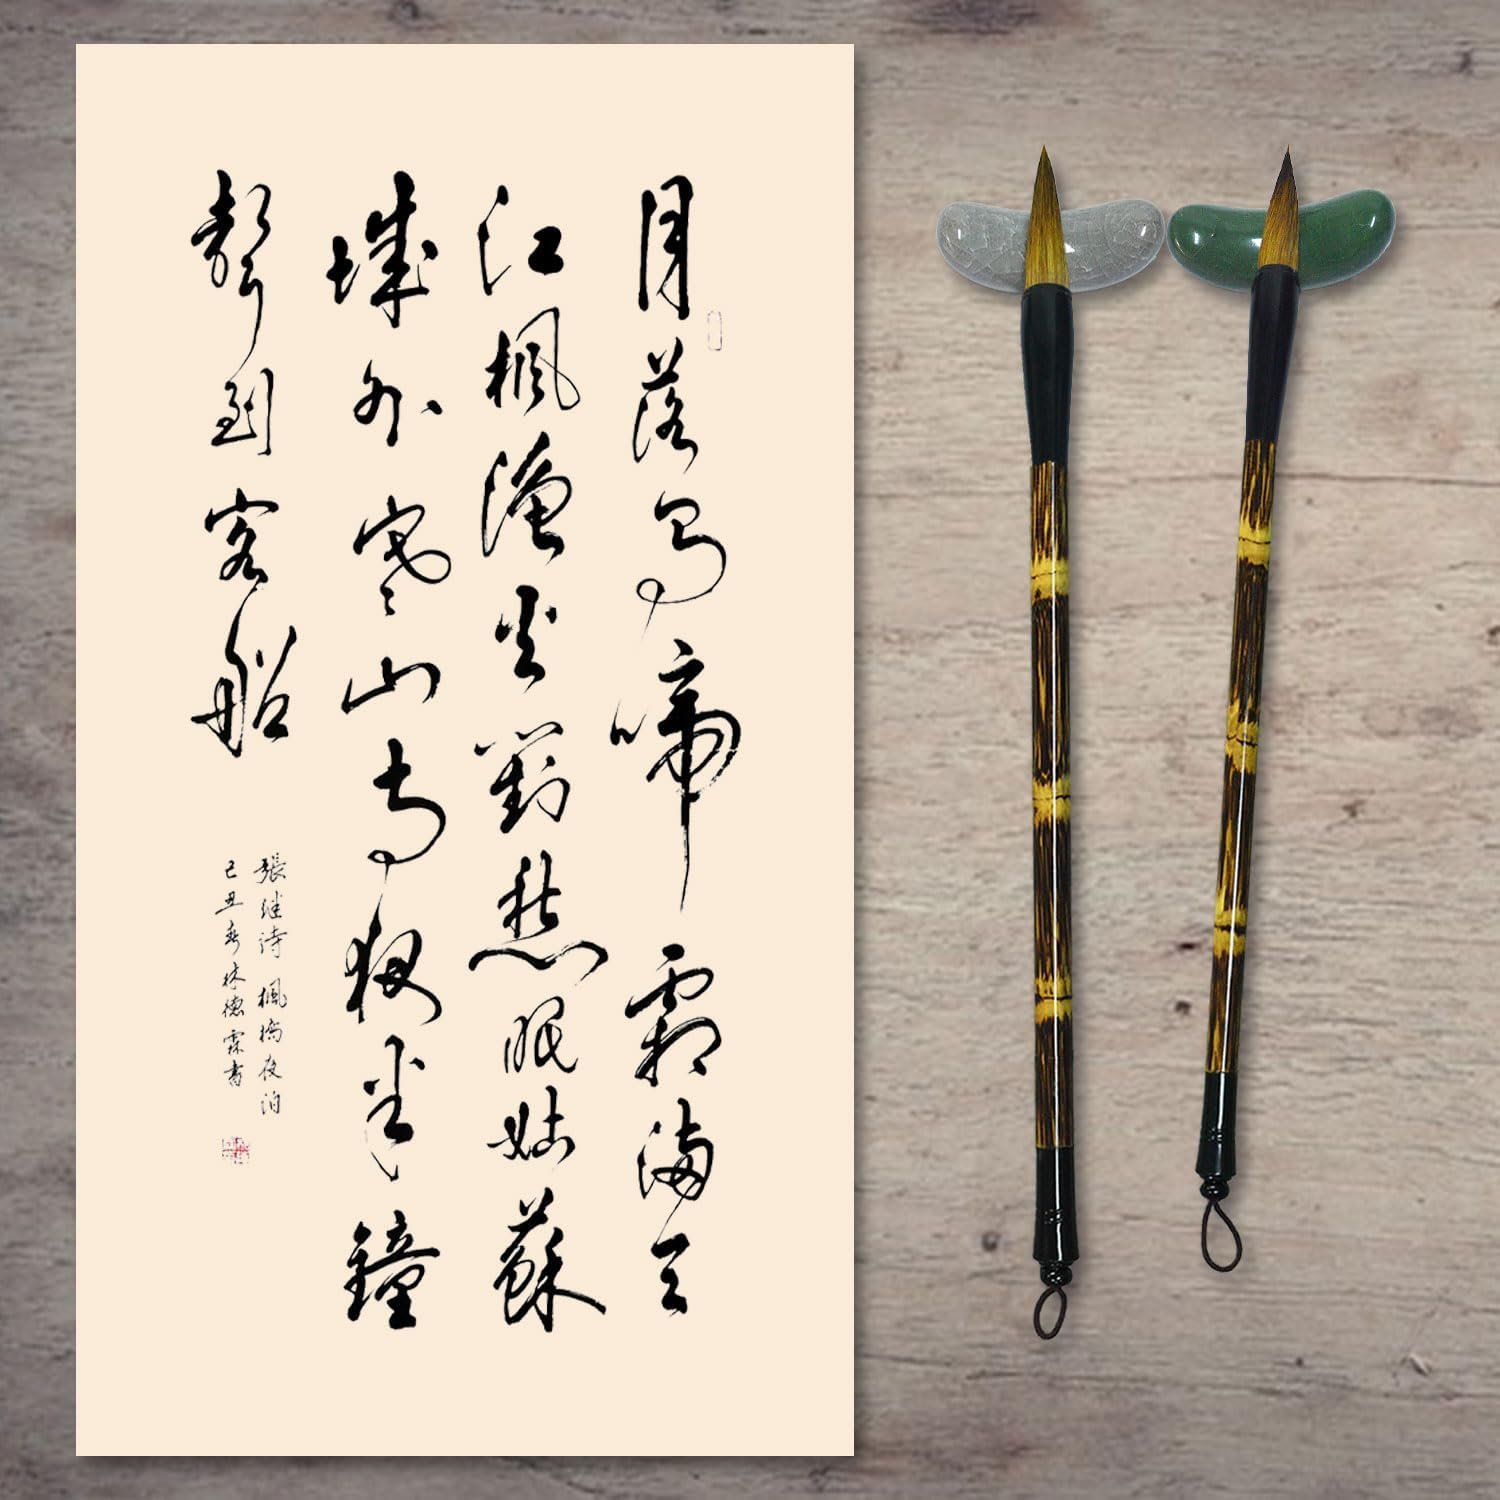 月落烏啼霜滿天
江楓漁火對愁眠姑蘇
城外寒山寺夜半鐘
聲到客船
張继诗 楓橋夜泊
己丑春林德霖書